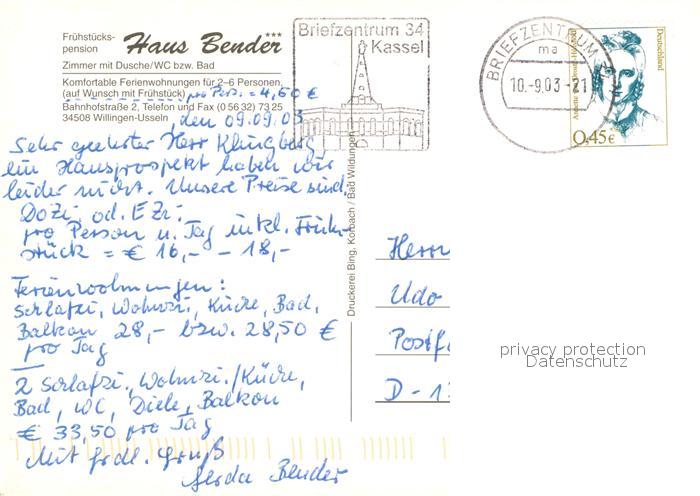 Frühstücks-
pension
Haus Bender***
Zimmer mit Dusche/WC bzw. Bad
Komfortable Ferienwohnungen für 2–6 Personen
(auf Wunsch mit Frühstück) pro Pers. = 4,60 €
Bahnhofstraße 2, Telefon und Fax (0 56 32) 73 25
34508 Willingen-Usseln
den 09.09.03
Sehr geehrter Herr Klingberg
ein Hausprospekt haben wir
leider nicht. Unsere Preise sind.
DoZi. od. EZi:
pro Person u. Tag inkl. Früh-
stück = € 16,- - 18,-
Ferienwohnungen:
Schlafzi, Wohnzi, Küche, Bad,
Balkon 28,- bzw. 28,50 €
pro Tag
2 Schlafzi., Wohnzi./Küche,
Bad, WC, Diele, Balkon
€ 33,50 pro Tag
Mit frdl. Gruß
Gerda Bender
Druckerei Bing, Korbach / Bad Wildungen
Briefzentrum 34
Kassel
BRIEFZENTRUM
ma
10.-9.03-21
Deutschland
0,45€
Herrn
Udo
Postf
D - 1
privacy protection
Datenschutz